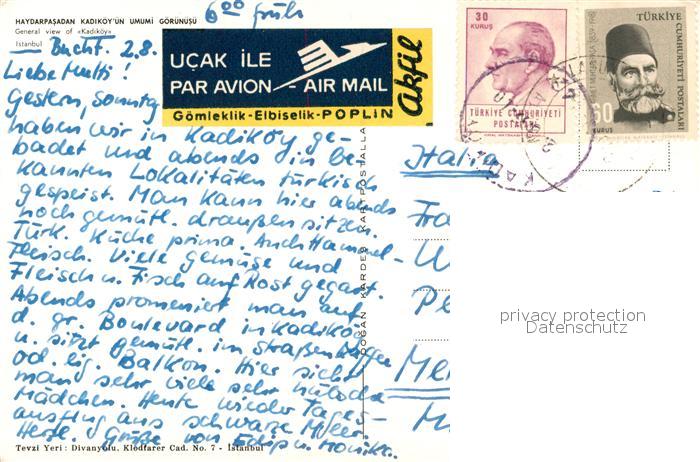 HAYDARPAŞADAN KADIKÖY'ÜN UMUMİ GÖRÜNÜŞÜ
General view of «Kadıköy»
Istanbul
6 00 früh
Bucht. 2.8.
Liebe Mutti!
Gestern, sonntg
haben wir in Kadiköy ge-
badet und abends in be-
kannten Lokalitäten türkisch
gespeist. Man kann hier abends
noch gemütl. draußen sitzen.
Türk. Küche prima. Auch Hammel-
Fleisch. Viele gemüse und
Fleisch u. Fisch auf Rost gegart.
Abends promeniert man auf
d. gr. Boulevard in Kadiköy
u. sitzt gemütl. im Straßen
od. eig. Balkon. Hier sieht
man sehr viele sehr hübsche
Mädchen. Heute wieder Tages-
ausflug ans schwarze Meer.
Herzl. Grüße von Edip u. Monika.
Tevzi Yeri: Divanyolu, Klodfarer Cad. No. 7 - İstanbul
UÇAK İLE
PAR AVION - AIR MAIL
Gömleklik-Elbiselik-POPLİN
Akfil
30
KURUŞ
TÜRKİYE CUMHURİYETİ
POSTALARI
TÜRKİYE
CUMHURİYETİ POSTALARI
60
KURUŞ
DOĞAN KARDEŞ KARTPOSTALLARI
Italia
privacy protection
Datenschutz